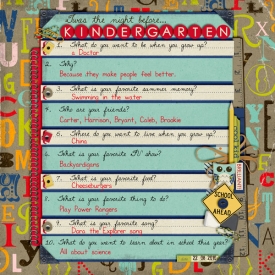 Twas the night before...
KINDERGARTEN
1. What do you want to be when you grow up?
a Doctor
2. Why?
Because they make people feel better.
3. What is your favorite summer memory?
Swimming in the water
4. Who are your friends?
Carter, Harrison, Bryant, Caleb, Brookie
5. Where do you want to live when you grow up?
China
6. What is your favorite TV show?
Backyardigans
7. What is your favorite food?
Cheeseburgers
8. What is your favorite thing to do?
Play Power Rangers
9. What is your favorite song?
Dora the Explorer song
10. What do you want to learn about in school this year?
All about science
SCHOOL
AHEAD